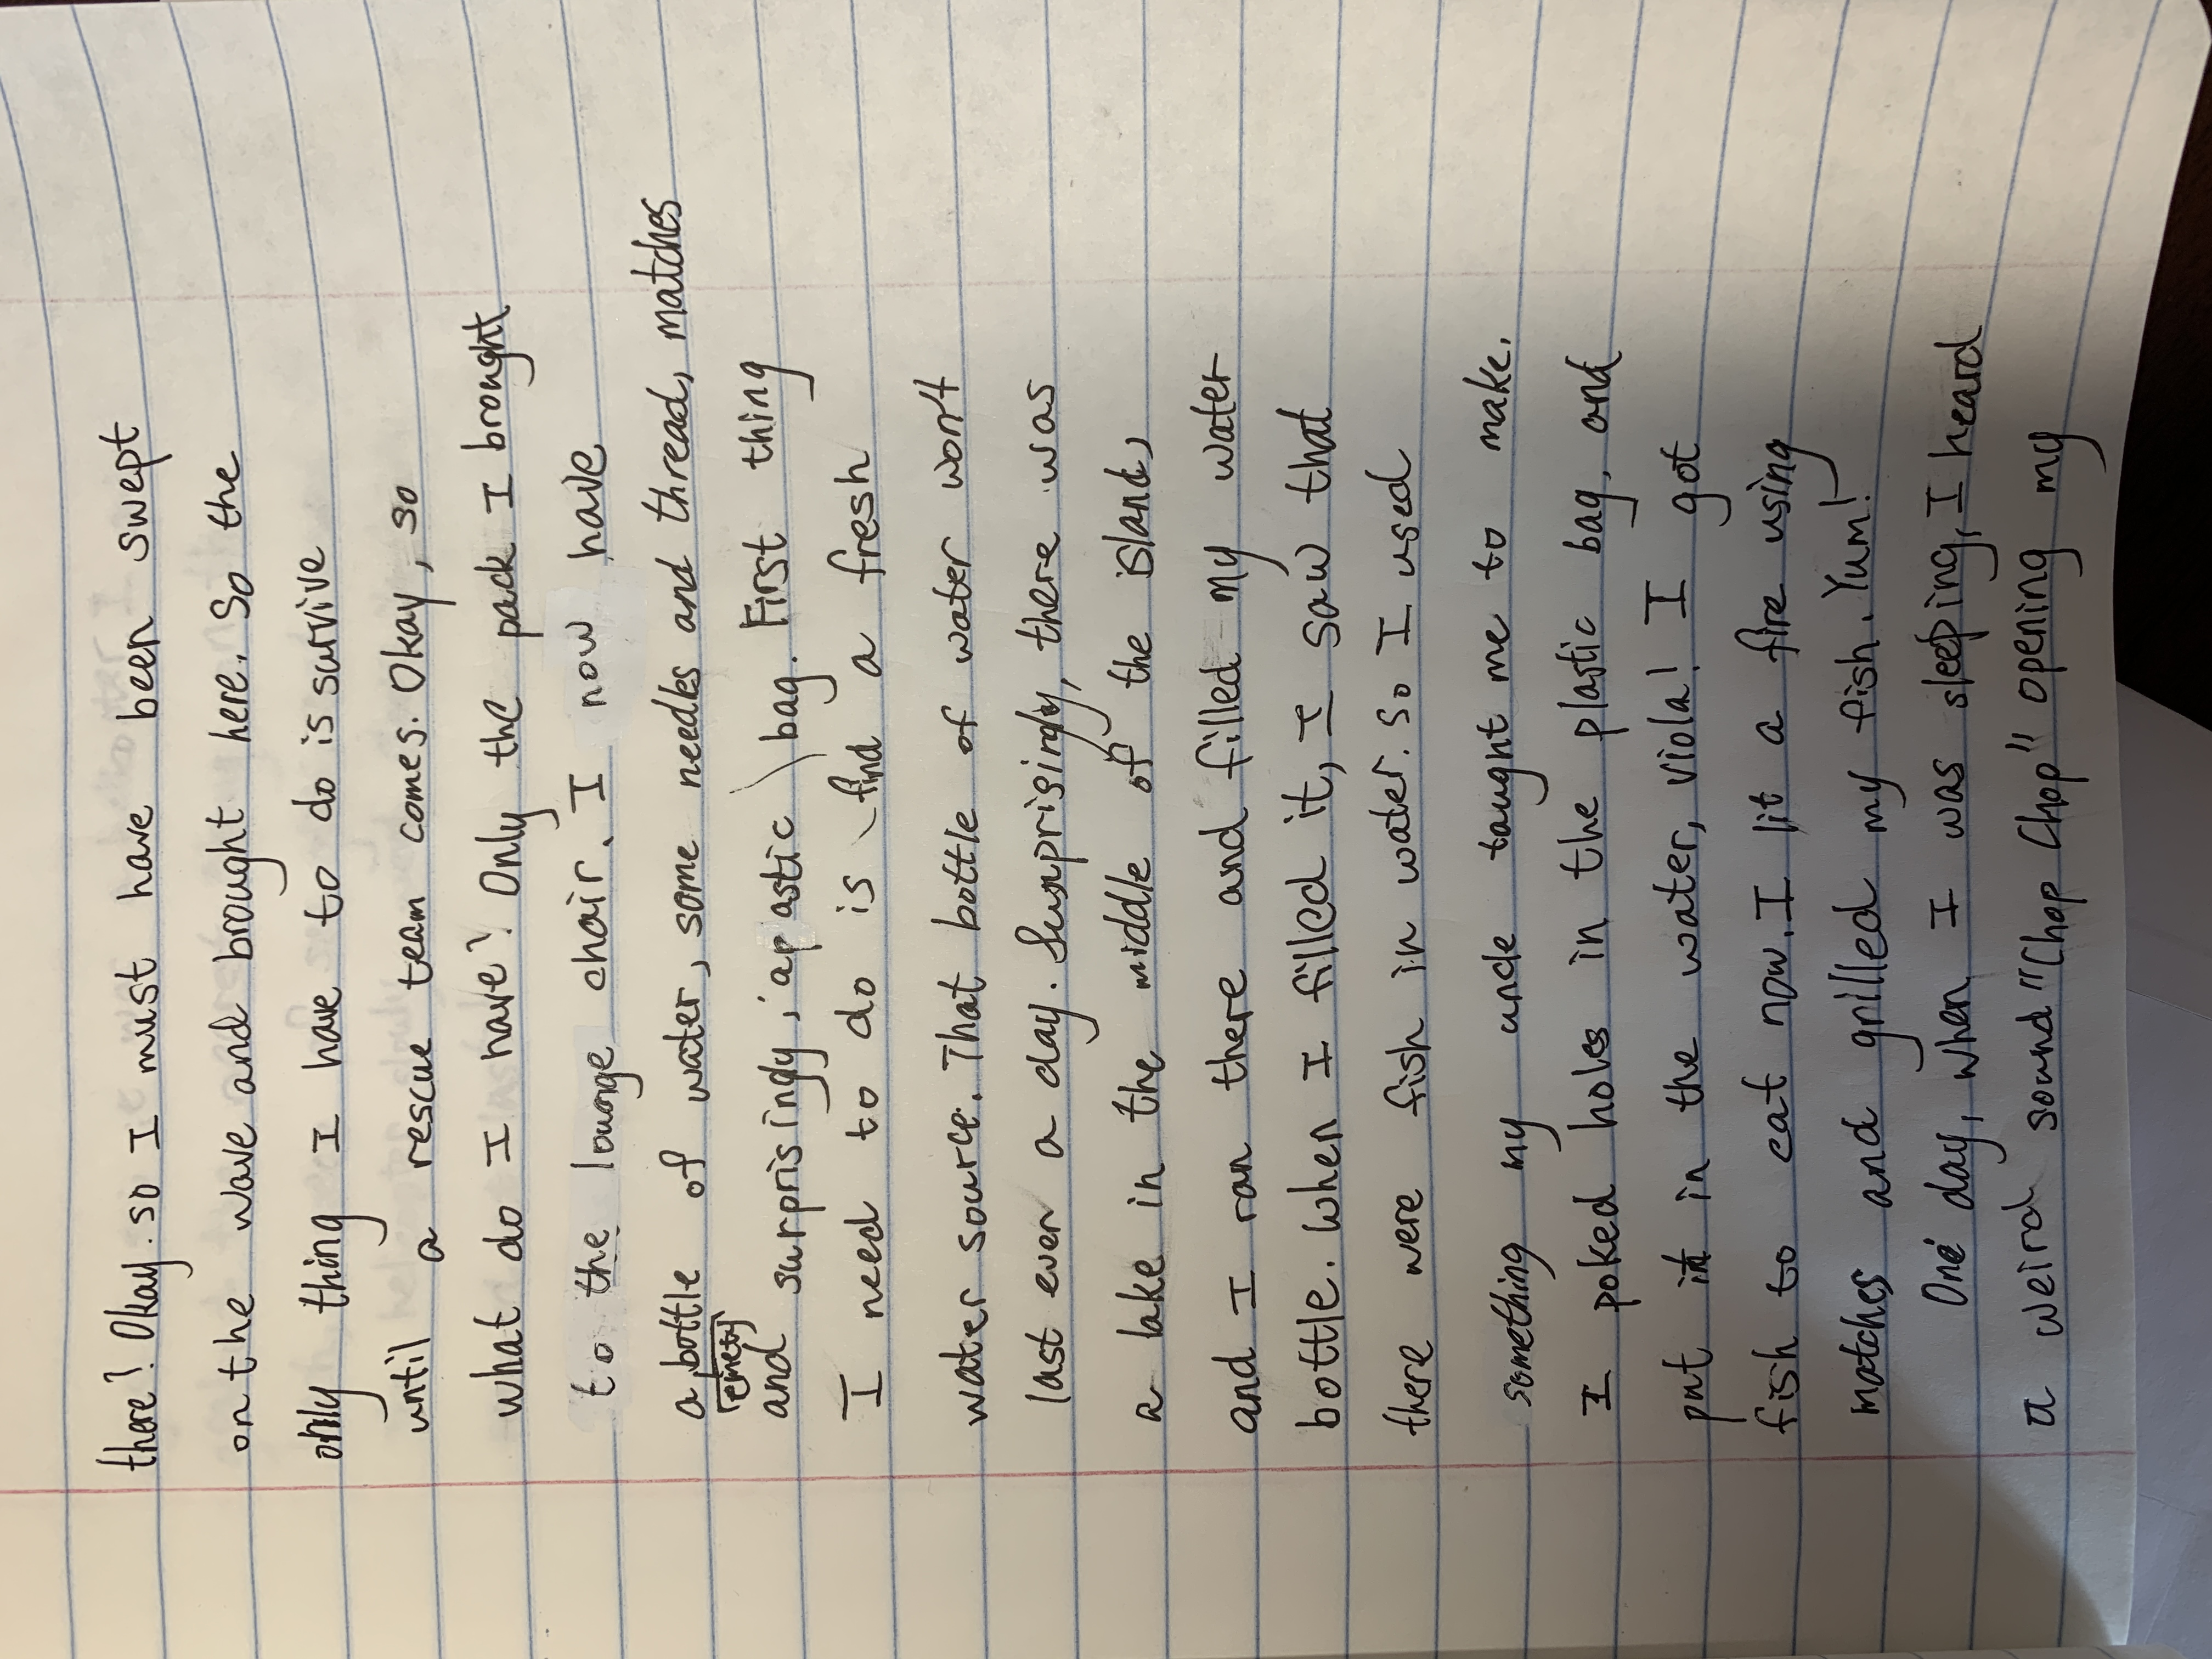 there? Okay. so I must have been swept
on the wave and brought here. So the
only thing I have to do is survive
until a rescue team comes. Okay, so
what do I have? Only the pack I brought
to the lounge chair. I now have
a bottle of water, some needles and thread, matches
and surprisingly, a p astic bag. First thing
I need to do is find a fresh
water source. That bottle of water won't
last even a day. Surprisingly, there was
a lake in the middle of the island,
and I ran there and filled my water
bottle. When I filled it, I saw that
there were fish in water. So I used
something my uncle taught me to make.
I poked holes in the plastic bag, and
put it in the water, viola! I got
fish to eat now. I lit a fire using
matches and grilled my fish. Yum!
One day, when I was sleeping, I heard
a weird sound "Chop Chop" opening my